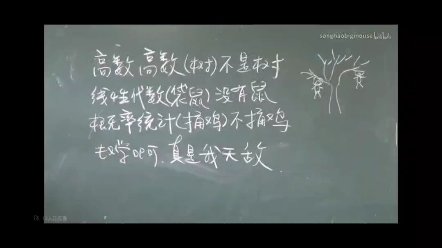 songhaobigmouse bilibili
高数高数(树)不是树
线性代数(袋鼠)没有鼠
概率统计(捅鸡)不捅鸡
数学呵,真是我天敌